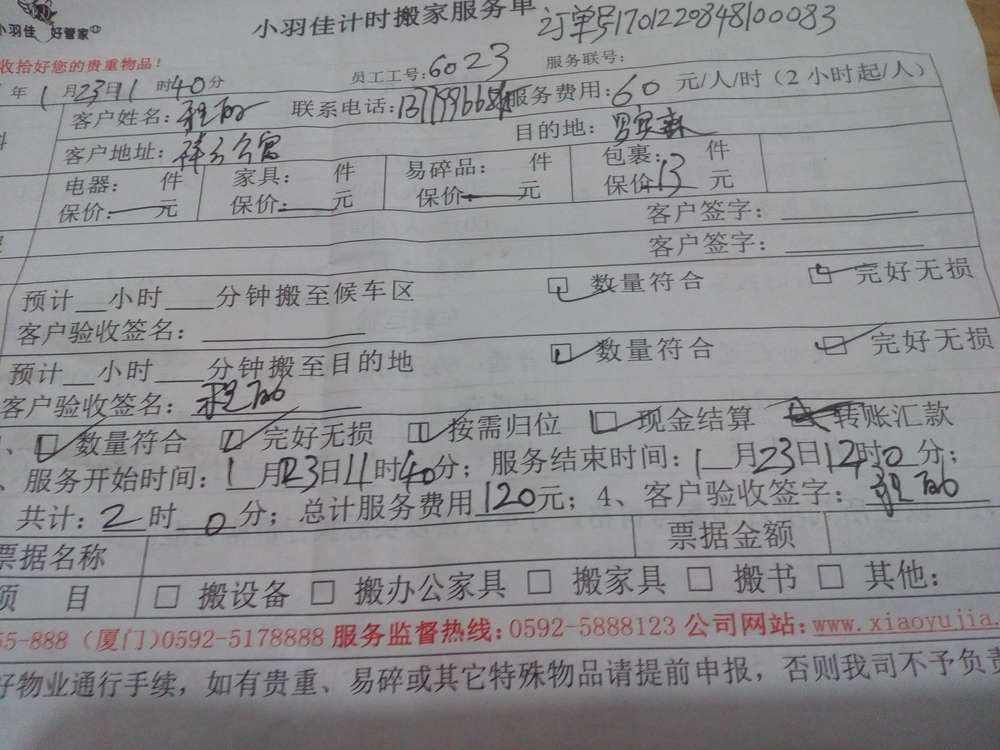 小羽佳 好管家
小羽佳计时搬家服务单 订单号1701220848100083
收拾好您的贵重物品!
员工工号:6023 服务联号:
年1月23日11时40分
客户姓名: 联系电话: 服务费用:60元/人/时(2小时起/人)
客户地址: 目的地:
电器: 件 家具: 件 易碎品: 件 包裹: 件
保价: 元 保价: 元 保价: 元 保价:13元
客户签字:
客户签字:
预计__小时___分钟搬至候车区 数量符合 完好无损
客户验收签名:
预计__小时___分钟搬至目的地 数量符合 完好无损
客户验收签名:
、数量符合 完好无损 按需归位 现金结算 转账汇款
、服务开始时间:1月23日11时40分;服务结束时间:1月23日12时0分;
共计:2时0分;总计服务费用120元;4、客户验收签字:
票据名称 票据金额
项 目 □ 搬设备 □ 搬办公家具 □ 搬家具 □ 搬书 □ 其他:
55-888 (厦门)0592-5178888 服务监督热线:0592-5888123 公司网站:www.xiaoyujia.
好物业通行手续,如有贵重、易碎或其它特殊物品请提前申报,否则我司不予负责